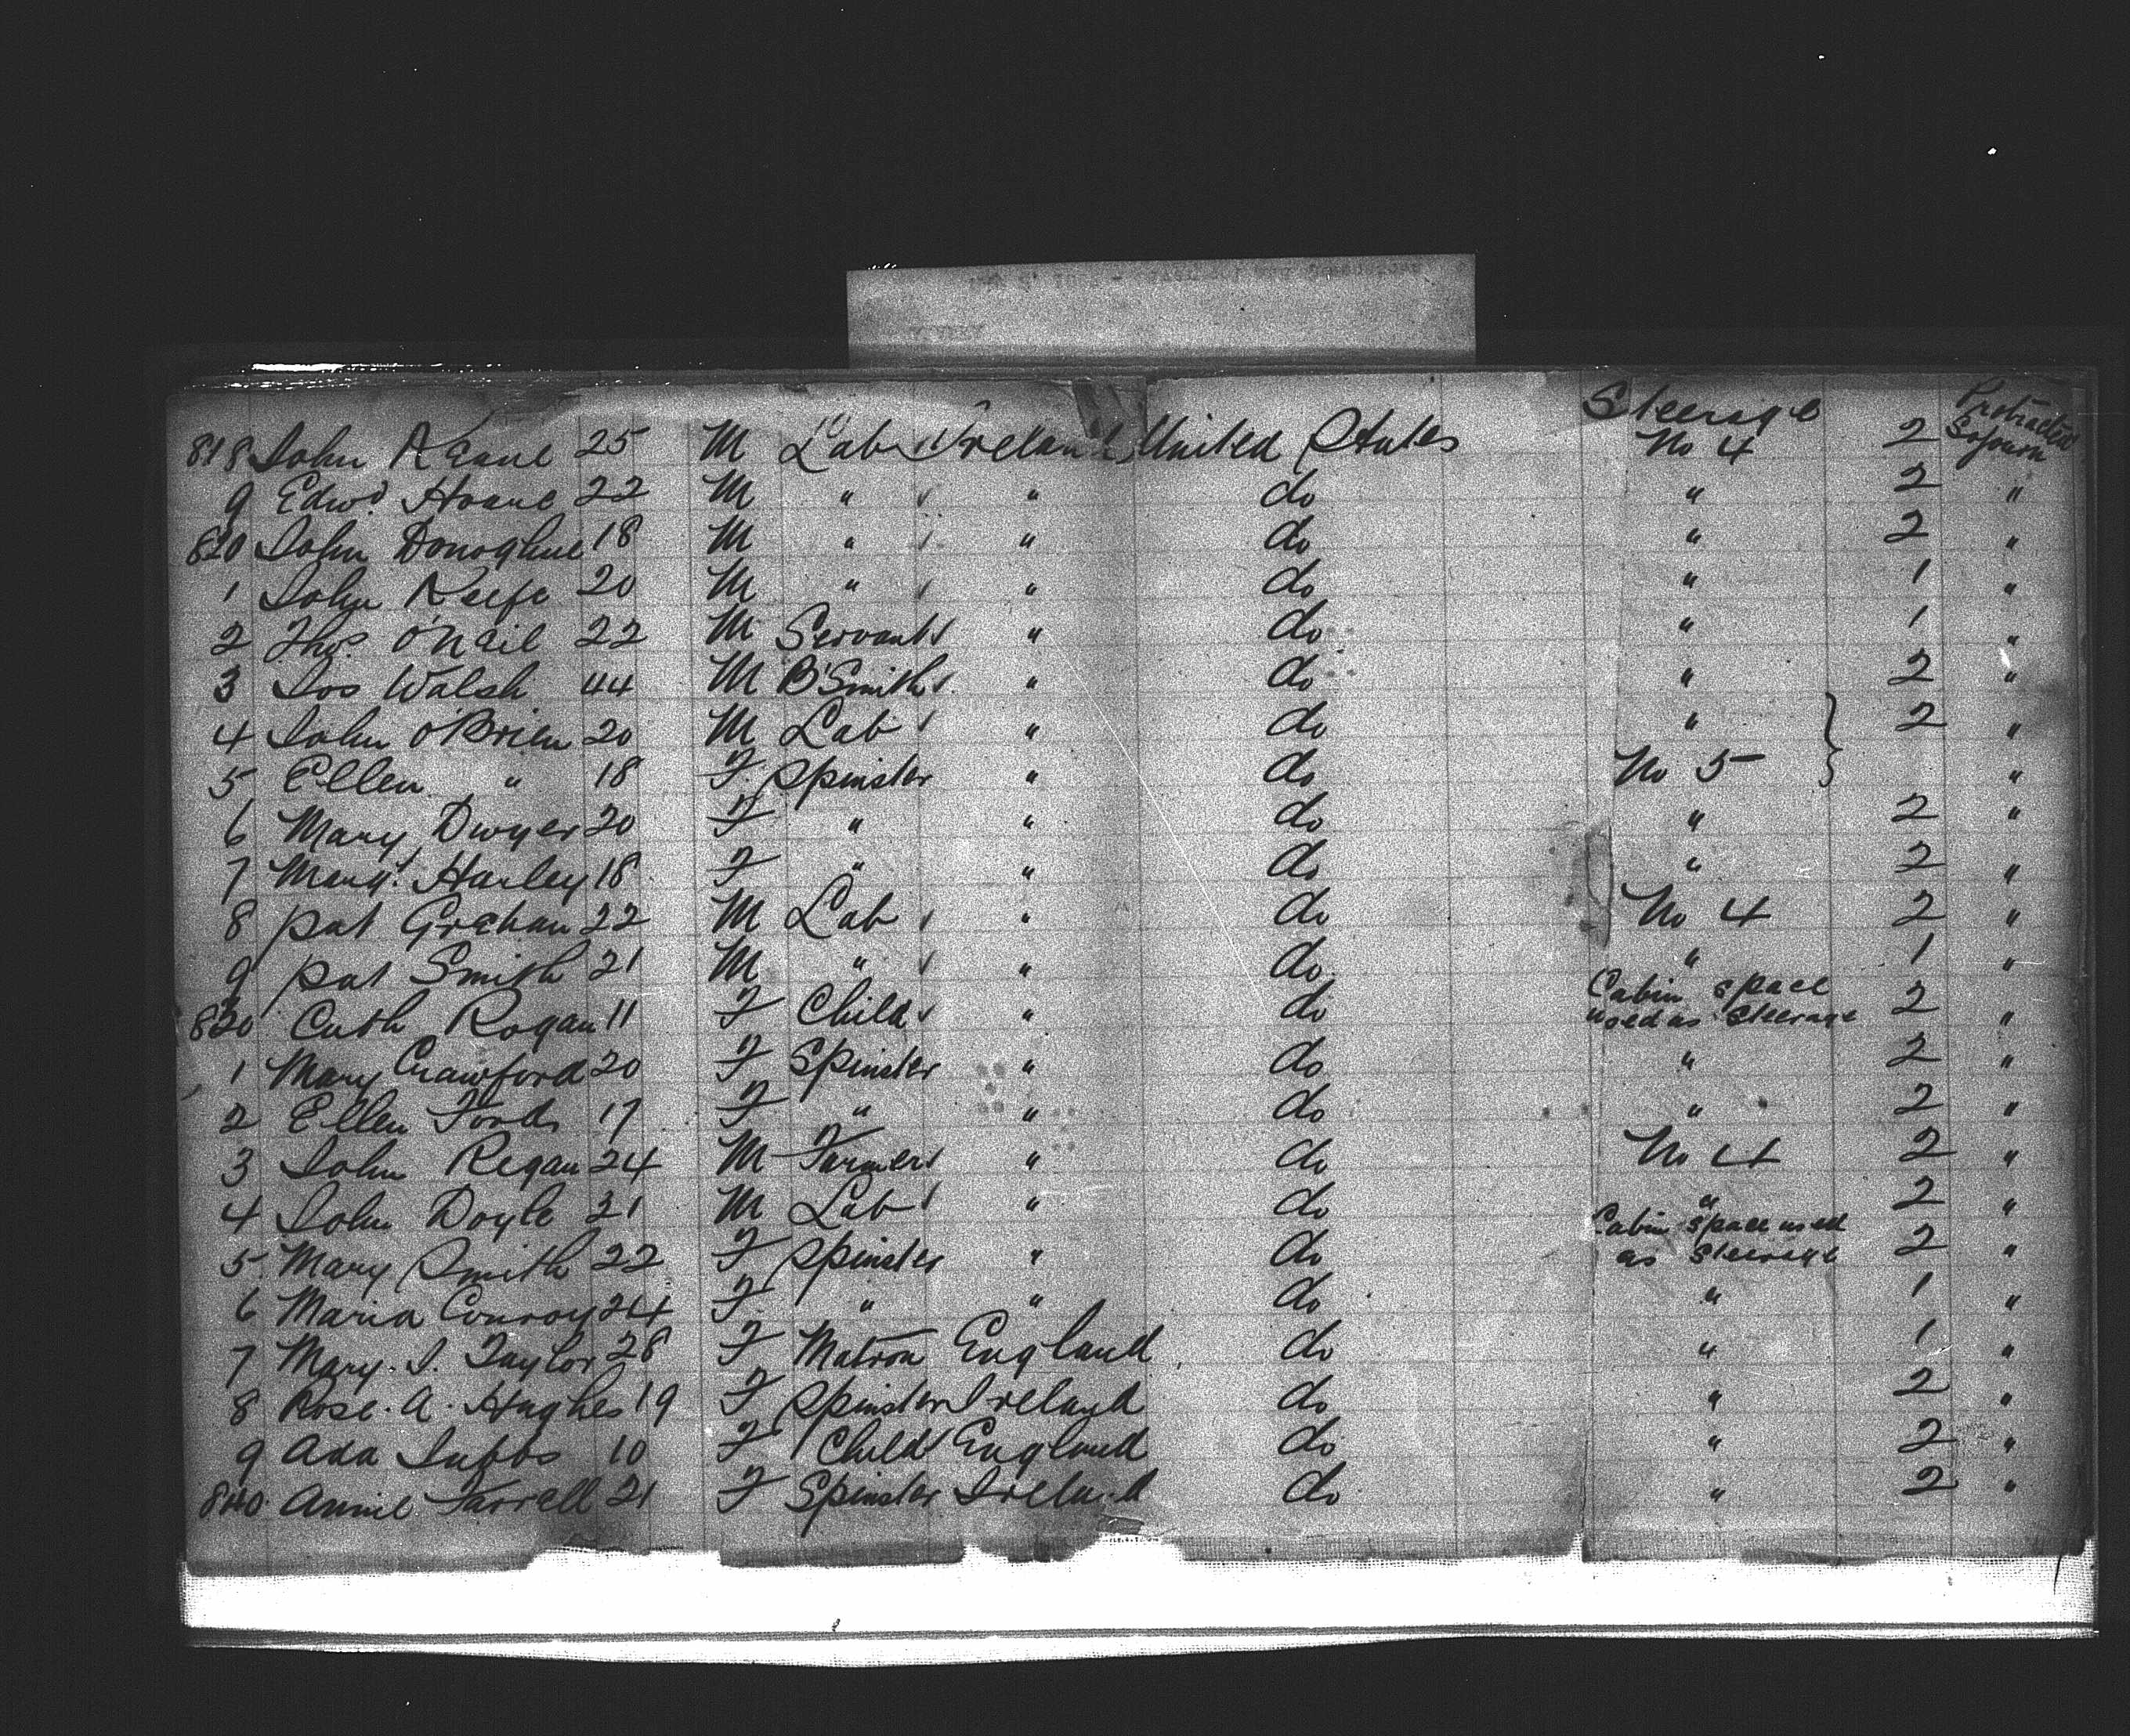 Steerage Protracted
818 John Keane 25 M Lab Ireland United States No 4 2 Sojourn
9 Edwd. Hoane 22 M " " do " 2 "
820 John Donoghue 18 M " " do " 2 "
1 John Keefe 20 M " " do " 1 "
2 Thos. O'Neil 22 M Servant " do " 1 "
3 Jos Walsh 44 M B'Smith " do " 2 "
4 John O'Brien 20 M Lab " do " 2 "
5 Ellen " 18 F Spinster " do No 5 "
6 Mary Dwyer 20 F " " do " 2 "
7 Margt. Harley 18 F " " do " 2 "
8 Pat Graham 22 M Lab " do No 4 2 "
9 Pat Smith 21 M " " do " 1 "
830 Cath Rogan 11 F Child " do Cabin space used as Steerage 2 "
1 Mary Crawford 20 F Spinster " do " 2 "
2 Ellen 17 F " " do " 2 "
3 John Regan 24 M Farmer " do No 4 2 "
4 John Doyle 21 M Lab " do " 2 "
5 Mary Smith 22 F Spinster " do Cabin space used as Steerage 2 "
6 Maria Conroy 24 F " " do " 1 "
7 Mary. J. Taylor 28 F Matron England do " 1 "
8 Rose. A. Hughes 19 F Spinster Ireland do " 2 "
9 Ada 10 F Child England do " 2 "
840 Annie Farrell 21 F Spinster Ireland do " 2 "